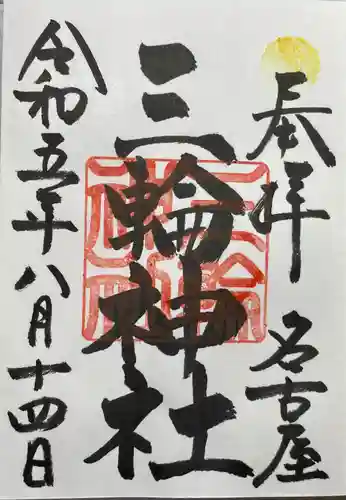 奉拝 名古屋
三輪神社
令和五年八月十四日